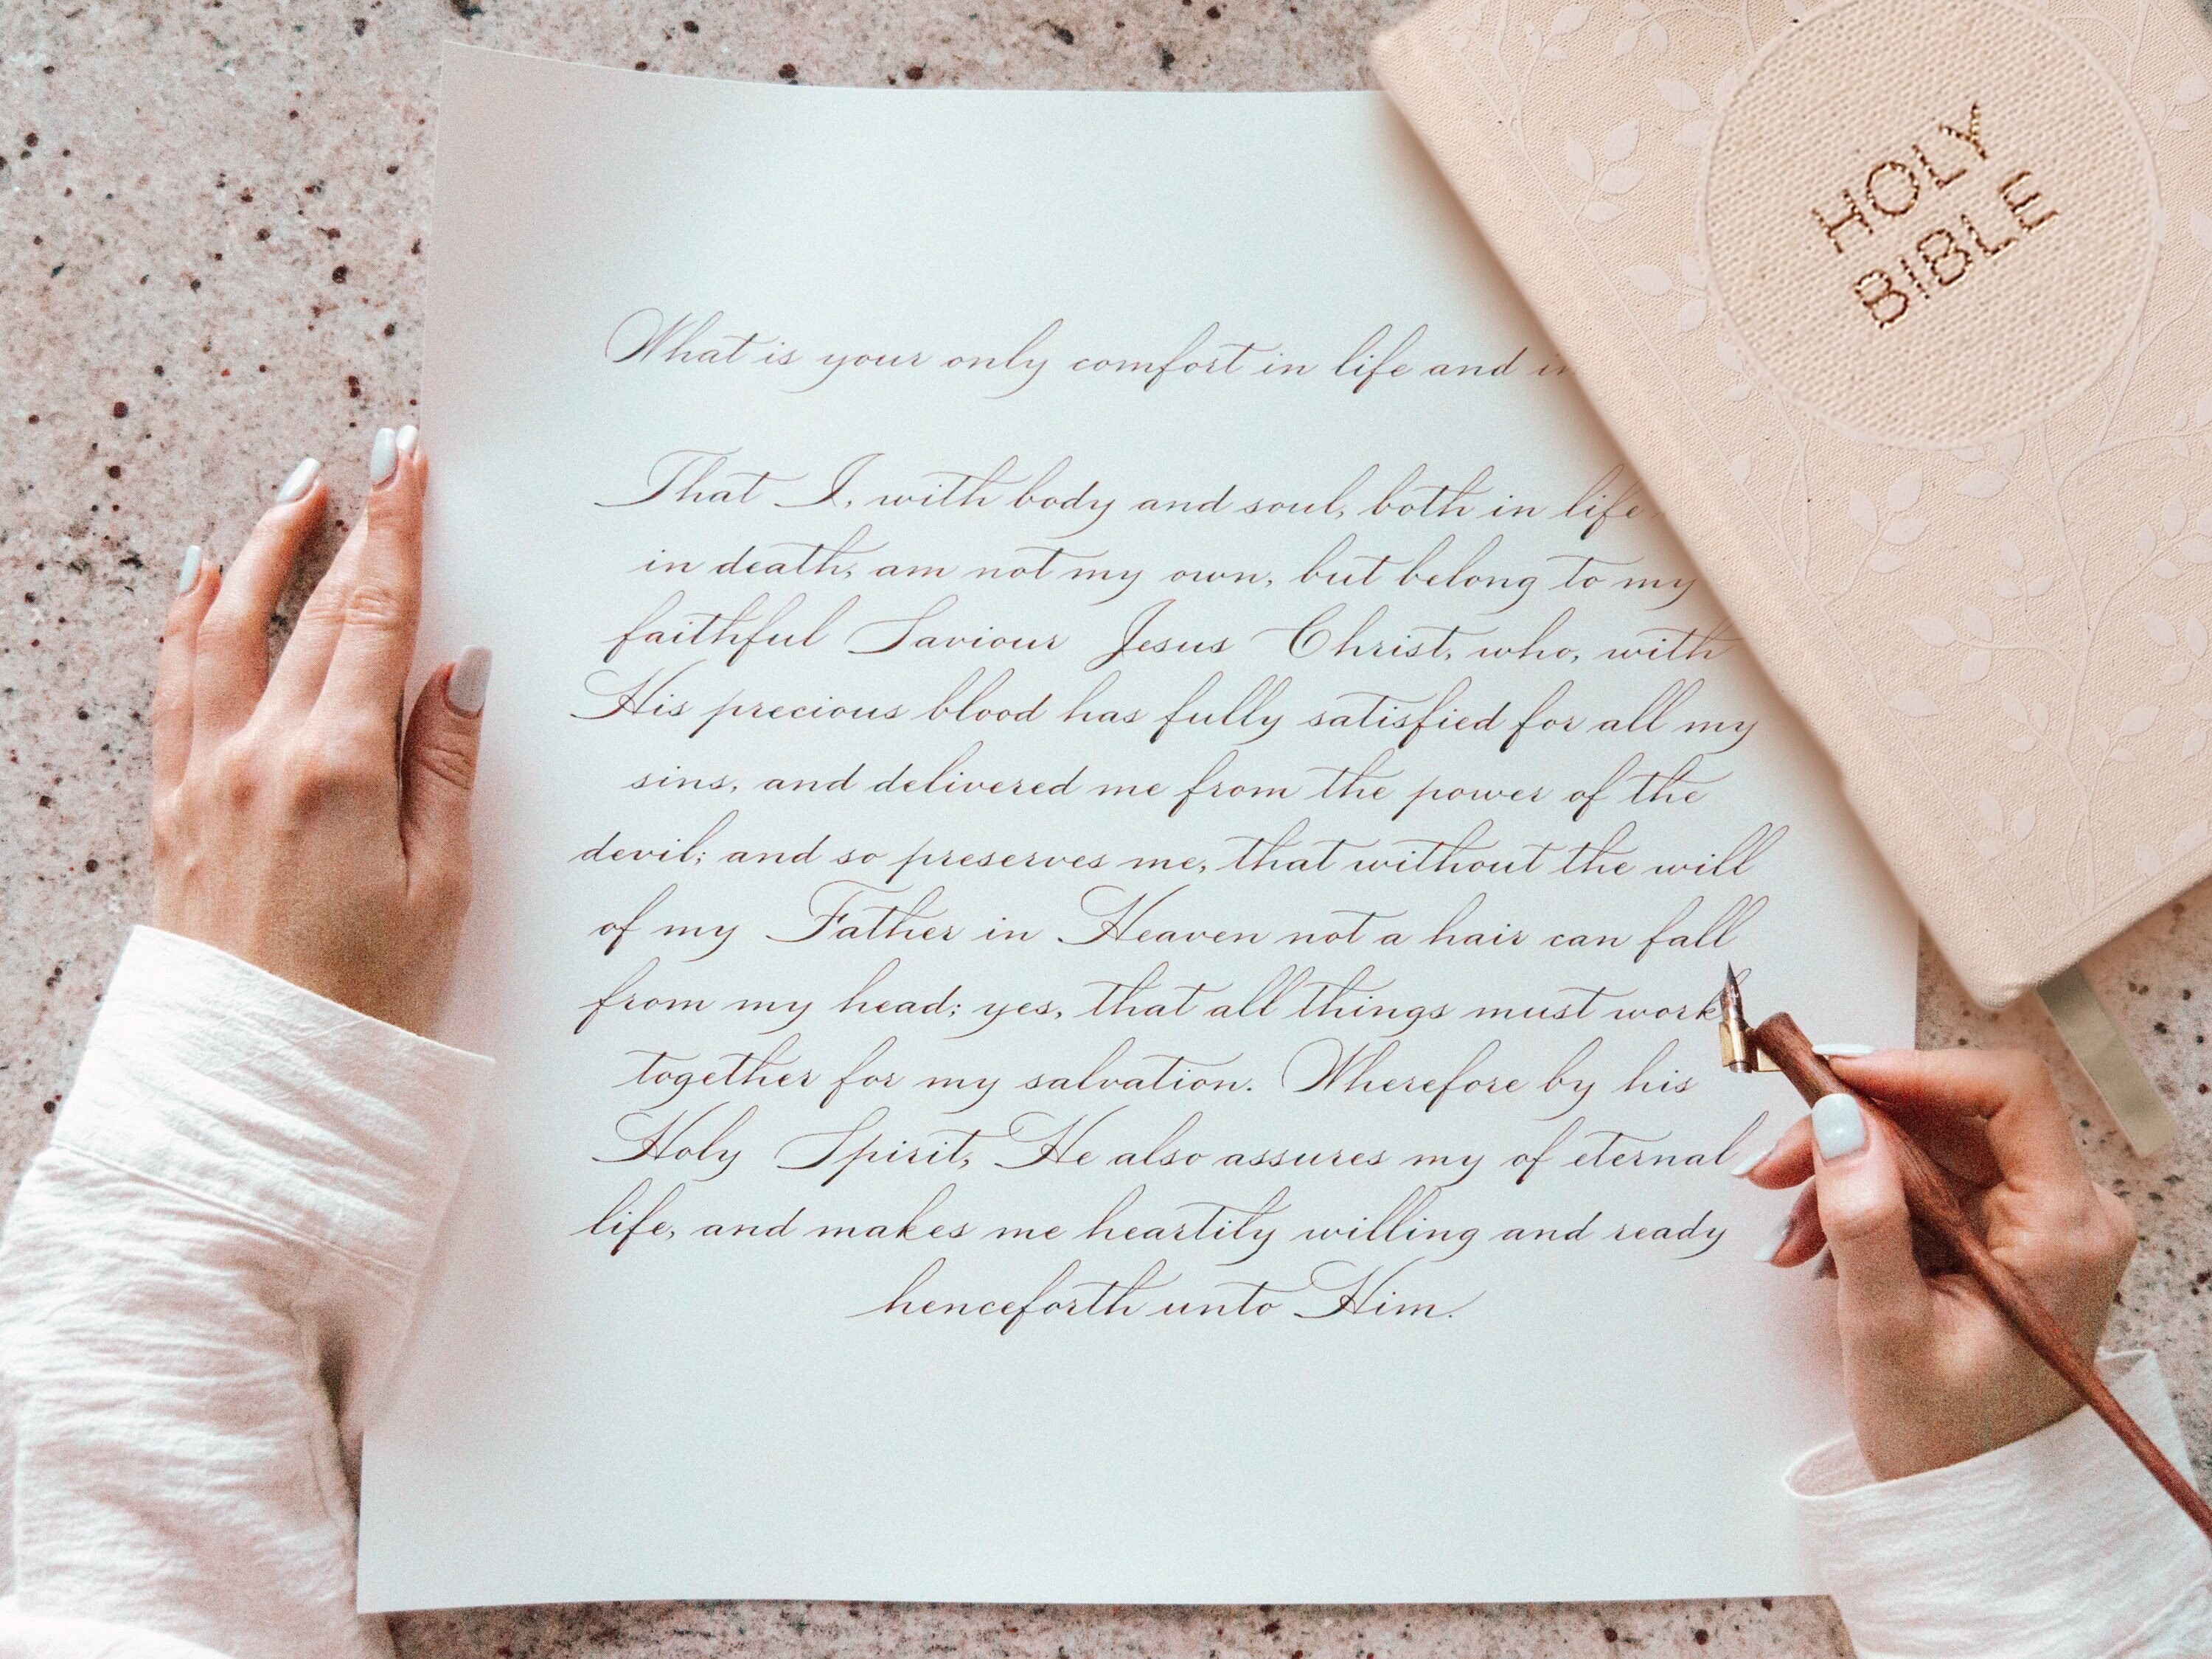 HOLY
BIBLE
What is your only comfort in life and in
That I, with body and soul, both in life
in death, am not my own, but belong to my
faithful Saviour Jesus Christ, who, with
His precious blood has fully satisfied for all my
sins, and delivered me from the power of the
devil; and so preserves me, that without the will
of my Father in Heaven not a hair can fall
from my head; yes, that all things must work
together for my salvation. Wherefore by his
Holy Spirit, He also assures my of eternal
life, and makes me heartily willing and ready
henceforth unto Him.